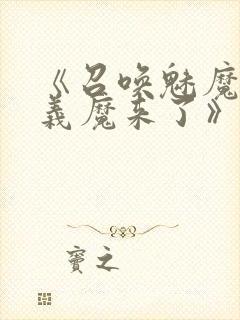 《召唤魅魔
义魔来了》
窦之